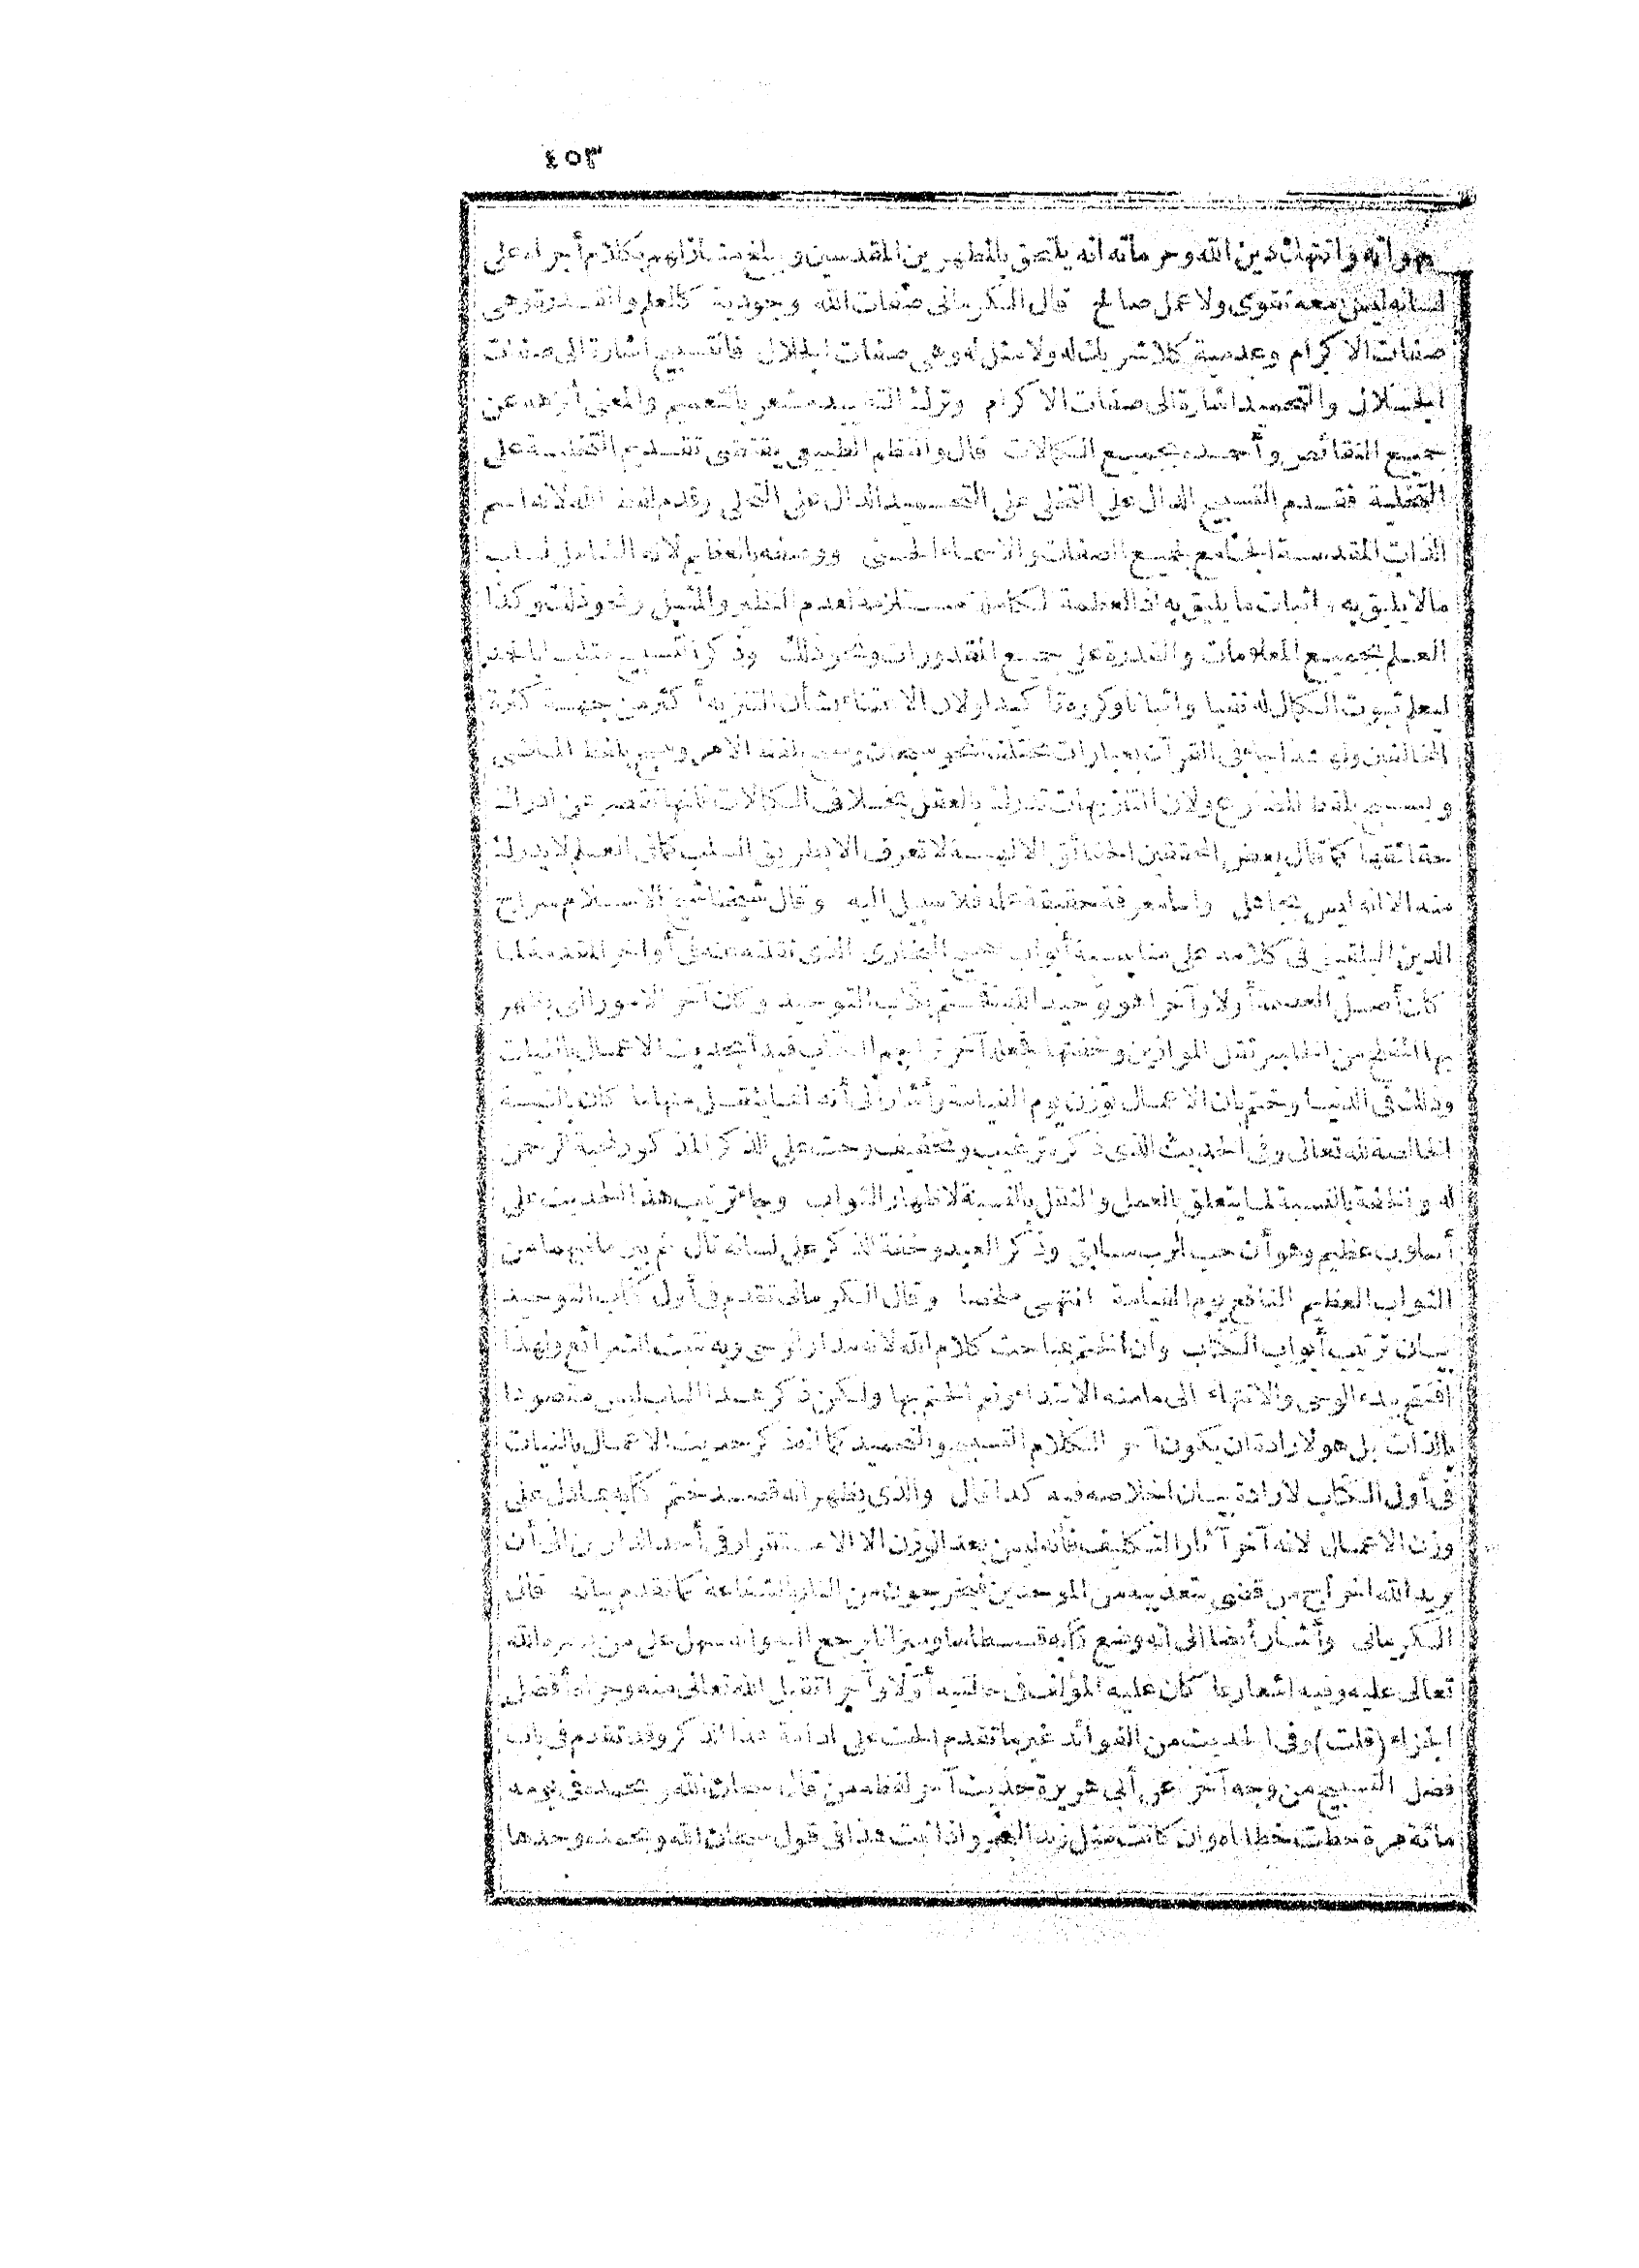 ٤٥٣
شهواته وانتهك دين الله وحرماته انه يلتحق بالمطهرين المقدسين ويبلغ منازلهم بكلام أجراه على
لسانه ليس معه تقوى ولا عمل صالح قال الكرمانى صفات الله وجودية كالعلم والقدرة وهى
صفات الاكرام وعدمية كلا شريك له ولا مثل له وهى صفات الجلال فالتسبيح اشارة الى صفات
الجلال والتحميد اشارة الى صفات الاكرام وترك التقييد مشعر بالتعميم والمعنى أنزهه عن
جميع النقائص وأحمده بجميع الكمالات قال والنظم الطبيعى يقتضى تقديم التخلية على
التحلية فقدم التسبيح الدال على التخلى على التحميد الدال على التحلى وقدم لفظ الله لانه اسم
الذات المقدسة الجامع لجميع الصفات والاسماء الحسنى ووصفه بالعظيم لانه الشامل لسلب
مالا يليق به واثبات ما يليق به اذ العظمة الكاملة مستلزمة لعدم النظير والمثيل ونحو ذلك وكذا
العلم بجميع المعلومات والقدرة على جميع المقدورات ونحو ذلك وذكر التسبيح متلبسا بالحمد
ليعلم ثبوت الكمال له نفيا واثباتا وكرره تأكيدا ولان الاعتناء بشأن التنزيه أكثر من جهة كثرة
المخالفين ولهذا جاء فى القرآن بعبارات مختلفة نحو سبحان وسبح بلفظ الامر وسبح بلفظ الماضى
ويسبح بلفظ المضارع ولان التنزيهات تدرك بالعقل بخلاف الكمالات فانها تقصر عن ادراك
حقائقها كما قال بعض المحققين الحقائق الالهية لا تعرف الا بطريق السلب كما فى العلم لا يدرك
منه الا انه ليس بجاهل وأما معرفة حقيقة علمه فلا سبيل اليه وقال شيخنا شيخ الاسلام سراج
الدين البلقينى فى كلامه على مناسبة أبواب صحيح البخارى الذى نقلته عنه فى أواخر المقدمة لما
كان أصل العصمة أولا وآخرا هو توحيد الله فختم بكتاب التوحيد وكان آخر الامور التى يظهر
بها المفلح من الخاسر ثقل الموازين وخفتها فجعله آخر تراجم الكتاب فبدأ بحديث الاعمال بالنيات
وذلك فى الدنيا وختم بان الاعمال توزن يوم القيامة وأشار الى أنه انما يثقل منها ما كان بالنية
الخالصة لله تعالى وفى الحديث الذى ذكره ترغيب وتخفيف وحث على الذكر المذكور لمحبة الرحمن
له والخفة بالنسبة لما يتعلق بالعمل والثقل بالنسبة لاظهار الثواب وجاء ترتيب هذا الحديث على
أسلوب عظيم وهو أن حب الرب سابق وذكر العبد وخفة الذكر على لسانه تال ثم بين ما فيهما من
الثواب العظيم النافع يوم القيامة انتهى ملخصا وقال الكرمانى تقدم فى أول كتاب التوحيد
بيان ترتيب أبواب الكتاب وان الختم بمباحث كلام الله لانه مدار الوحى وبه تثبت الشرائع ولهذا
افتتح ببدء الوحى والانتهاء الى ما منه الابتداء ونعم الختم بها ولكن ذكر هذا الباب ليس مقصودا
بالذات بل هو لارادة ان يكون آخر الكلام التسبيح والتحميد كما انه ذكر حديث الاعمال بالنيات
فى أول الكتاب لارادة بيان اخلاصه فيه كذا قال والذى يظهر انه قصد ختم كتابه بما دل على
وزن الاعمال لانه آخر آثار التكليف فانه ليس بعد الوزن الا الاستقرار فى أحد الدارين الى أن
يريد الله اخراج من قضى بتعذيبه من الموحدين فيخرجون من النار بالشفاعة كما تقدم بيانه قال
الكرمانى وأشار أيضا الى انه وضع كتابه قسطاسا وميزانا يرجع اليه وانه سهل على من يسره الله
تعالى عليه وفيه اشعار بما كان عليه المؤلف فى حالتيه أولا وآخرا تقبل الله تعالى منه وجزاه أفضل
الجزاء (قلت) وفى الحديث من الفوائد غير ما تقدم الحث على ادامة هذا الذكر وقد تقدم فى باب
فضل التسبيح من وجه آخر عن أبى هريرة حديث آخر لفظه من قال سبحان الله وبحمده فى يومه
مائة مرة حطت خطاياه وان كانت مثل زبد البحر واذا ثبت هذا فى قول سبحان الله وبحمده وحدها